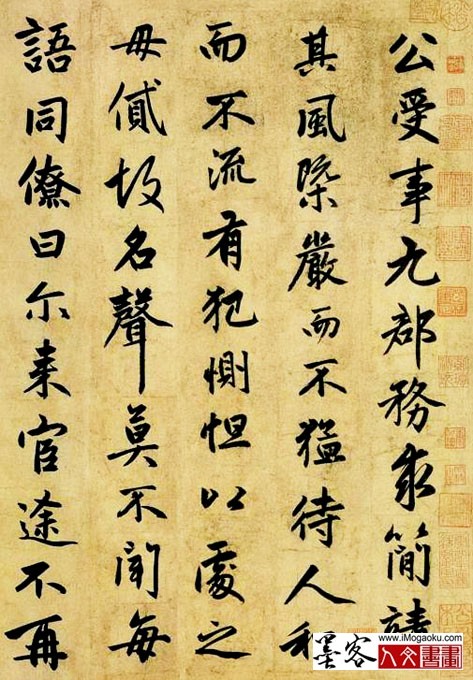 公受事九郡務求簡靖
其風槩嚴而不猛待人和
而不流有犯惻怛以處之
毋貸故名聲莫不聞每
語同僚曰尔来宦途不再
www.iMogaoku.com
墨客
人文書畫